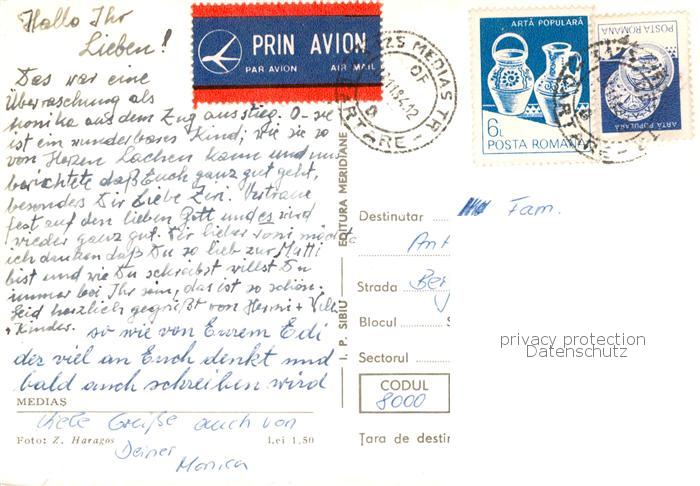 Hallo Ihr
Lieben!
Das war eine
Überraschung als
Monika aus dem Zug ausstieg. O – sie
ist ein wunderbares Kind, wie sie so
von Herzen Lachen kann und uns
berichtete daß Euch ganz gut geht,
besonders Dir Liebe Zeri. Vertraue
fest auf den lieben Gott und es wird
wieder ganz gut. Dir lieber möchte
ich danken daß Du so lieb zur Mutti
bist und wie Du schreibst willst Du
immer bei Ihr sein, das ist so schön.
Seid herzlich gegrüßt von Hermi +
+ Kinder. so wie von Eurem Edi
der viel an Euch denkt und
bald auch schreiben wird
MEDIAȘ
Viele Grüße auch von
Foto: Z. Haragos Lei 1,50
Deiner
Monica
PRIN AVION
PAR AVION AIR MAIL
MEDIAS TR
OF
CARTARE
I. P. SIBIU EDITURA MERIDIANE
ARTĂ POPULARĂ
6L
POSTA ROMANA
POSTA ROMANA
ARTĂ POPULARĂ
Destinutar Fam.
Ant
Strada Ber
Blocul
Sectorul
CODUL
8000
Țara de destin
privacy protection
Datenschutz